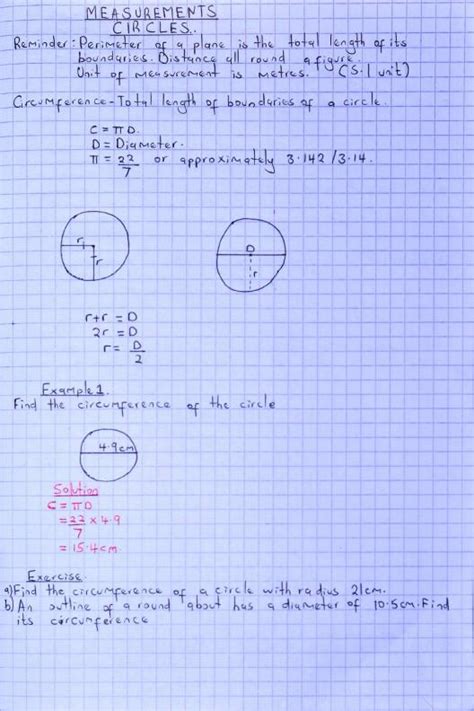 MEASUREMENTS
CIRCLES.
Reminder: Perimeter of a plane is the total length of its
boundaries. Distance all round a figure.
Unit of measurement is metres. (S.I unit)
Circumference - Total length of boundaries of a circle.
C = πD.
D = Diameter.
π = 22/7 or approximately 3.142 / 3.14.
r
r
D
r
r+r = D
2r = D
r = D/2
Example 1.
Find the circumference of the circle
4.9cm
Solution
C = πD
= 22/7 × 4.9
= 15.4cm.
Exercise.
a) Find the circumference of a circle with radius 21cm.
b) An outline of a round about has a diameter of 10.5cm. Find
its circumference